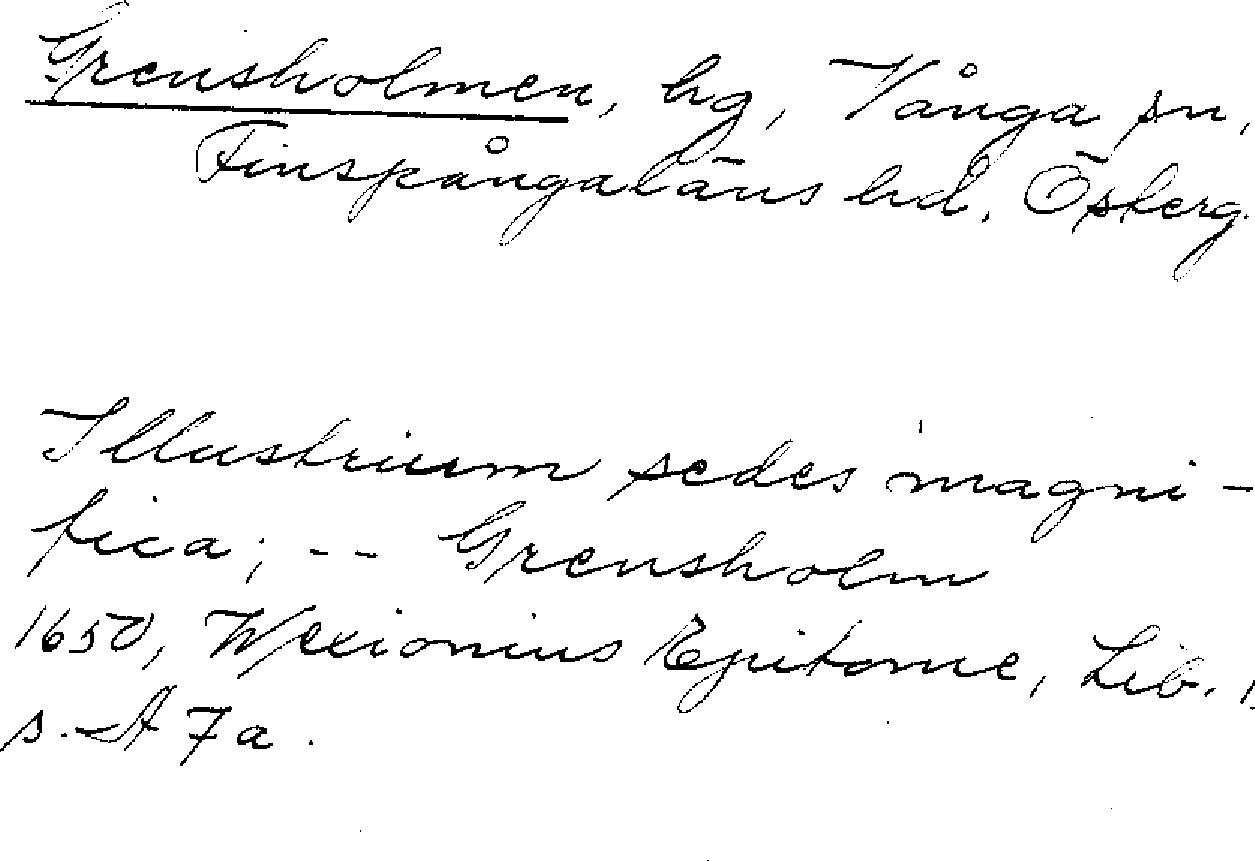 Grensholmen, hg, Vånga sn,
Finspångaläns hd, Österg.
Illustrium sedes magni-
fica; -- Grensholm
1650, Wexionius Epitome, Lib. 1,
s. A 7a.